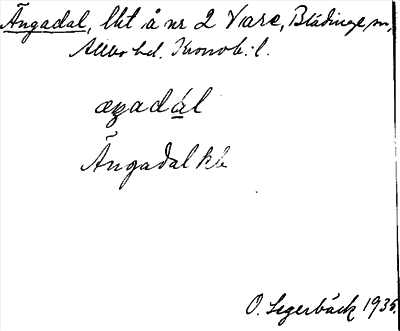 Ängadal, lht å nr 2 Vare, Blädinge sn,
Allbo hd. Kronob. l.
æŋadál
Ängadal
O. Segerbäck 1935.